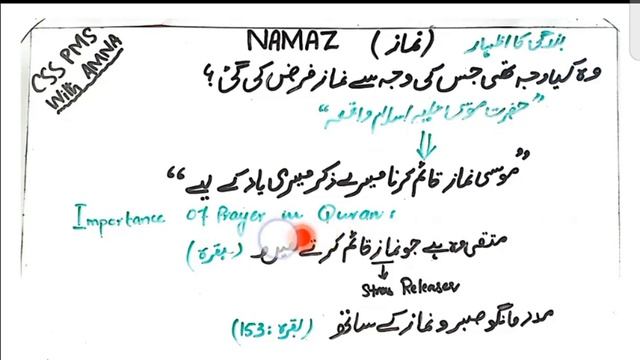 CSS PMS
With AMNA
NAMAZ (نماز) بندگی کا اظہار
وہ کیا وجہ تھی جس کی وجہ سے نماز فرض کی گئی؟
"حضرت موسیٰ علیہ اسلام واقعہ"
"موسیٰ نماز قائم کرنا میرے ذکر میری یاد کے لیے"
Importance Of Prayer in Quran:
متقی وہ ہے جو نماز قائم کرتے (بقرۃ)
Stress Releaser
مدد مانگو صبر و نماز کے ساتھ (بقرۃ: 153)